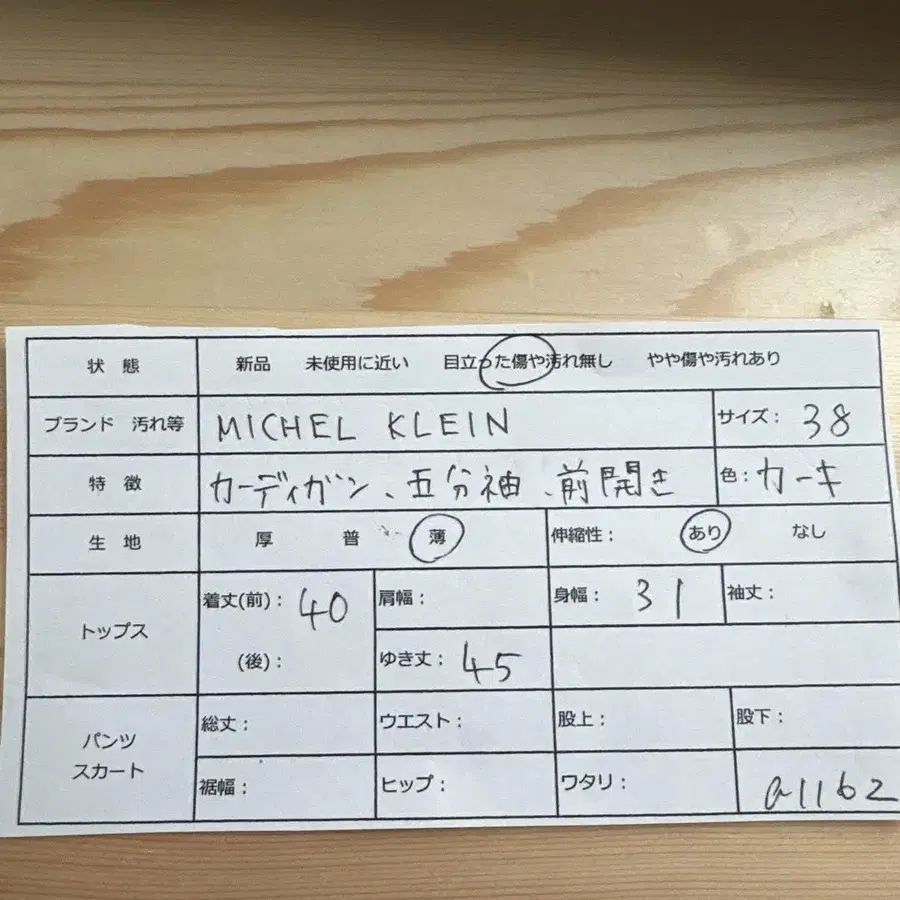 状 態 新品 未使用に近い 目立った傷や汚れ無し やや傷や汚れあり
ブランド 汚れ等 MICHEL KLEIN サイズ: 38
特 徴 カーディガン、五分袖、前開き 色: カーキ
生 地 厚 普 薄 伸縮性: あり なし
トップス
着丈(前): 40 肩幅: 身幅: 31 袖丈:
(後): ゆき丈: 45
パンツ
スカート
総丈: ウエスト: 股上: 股下:
裾幅: ヒップ: ワタリ: a1162